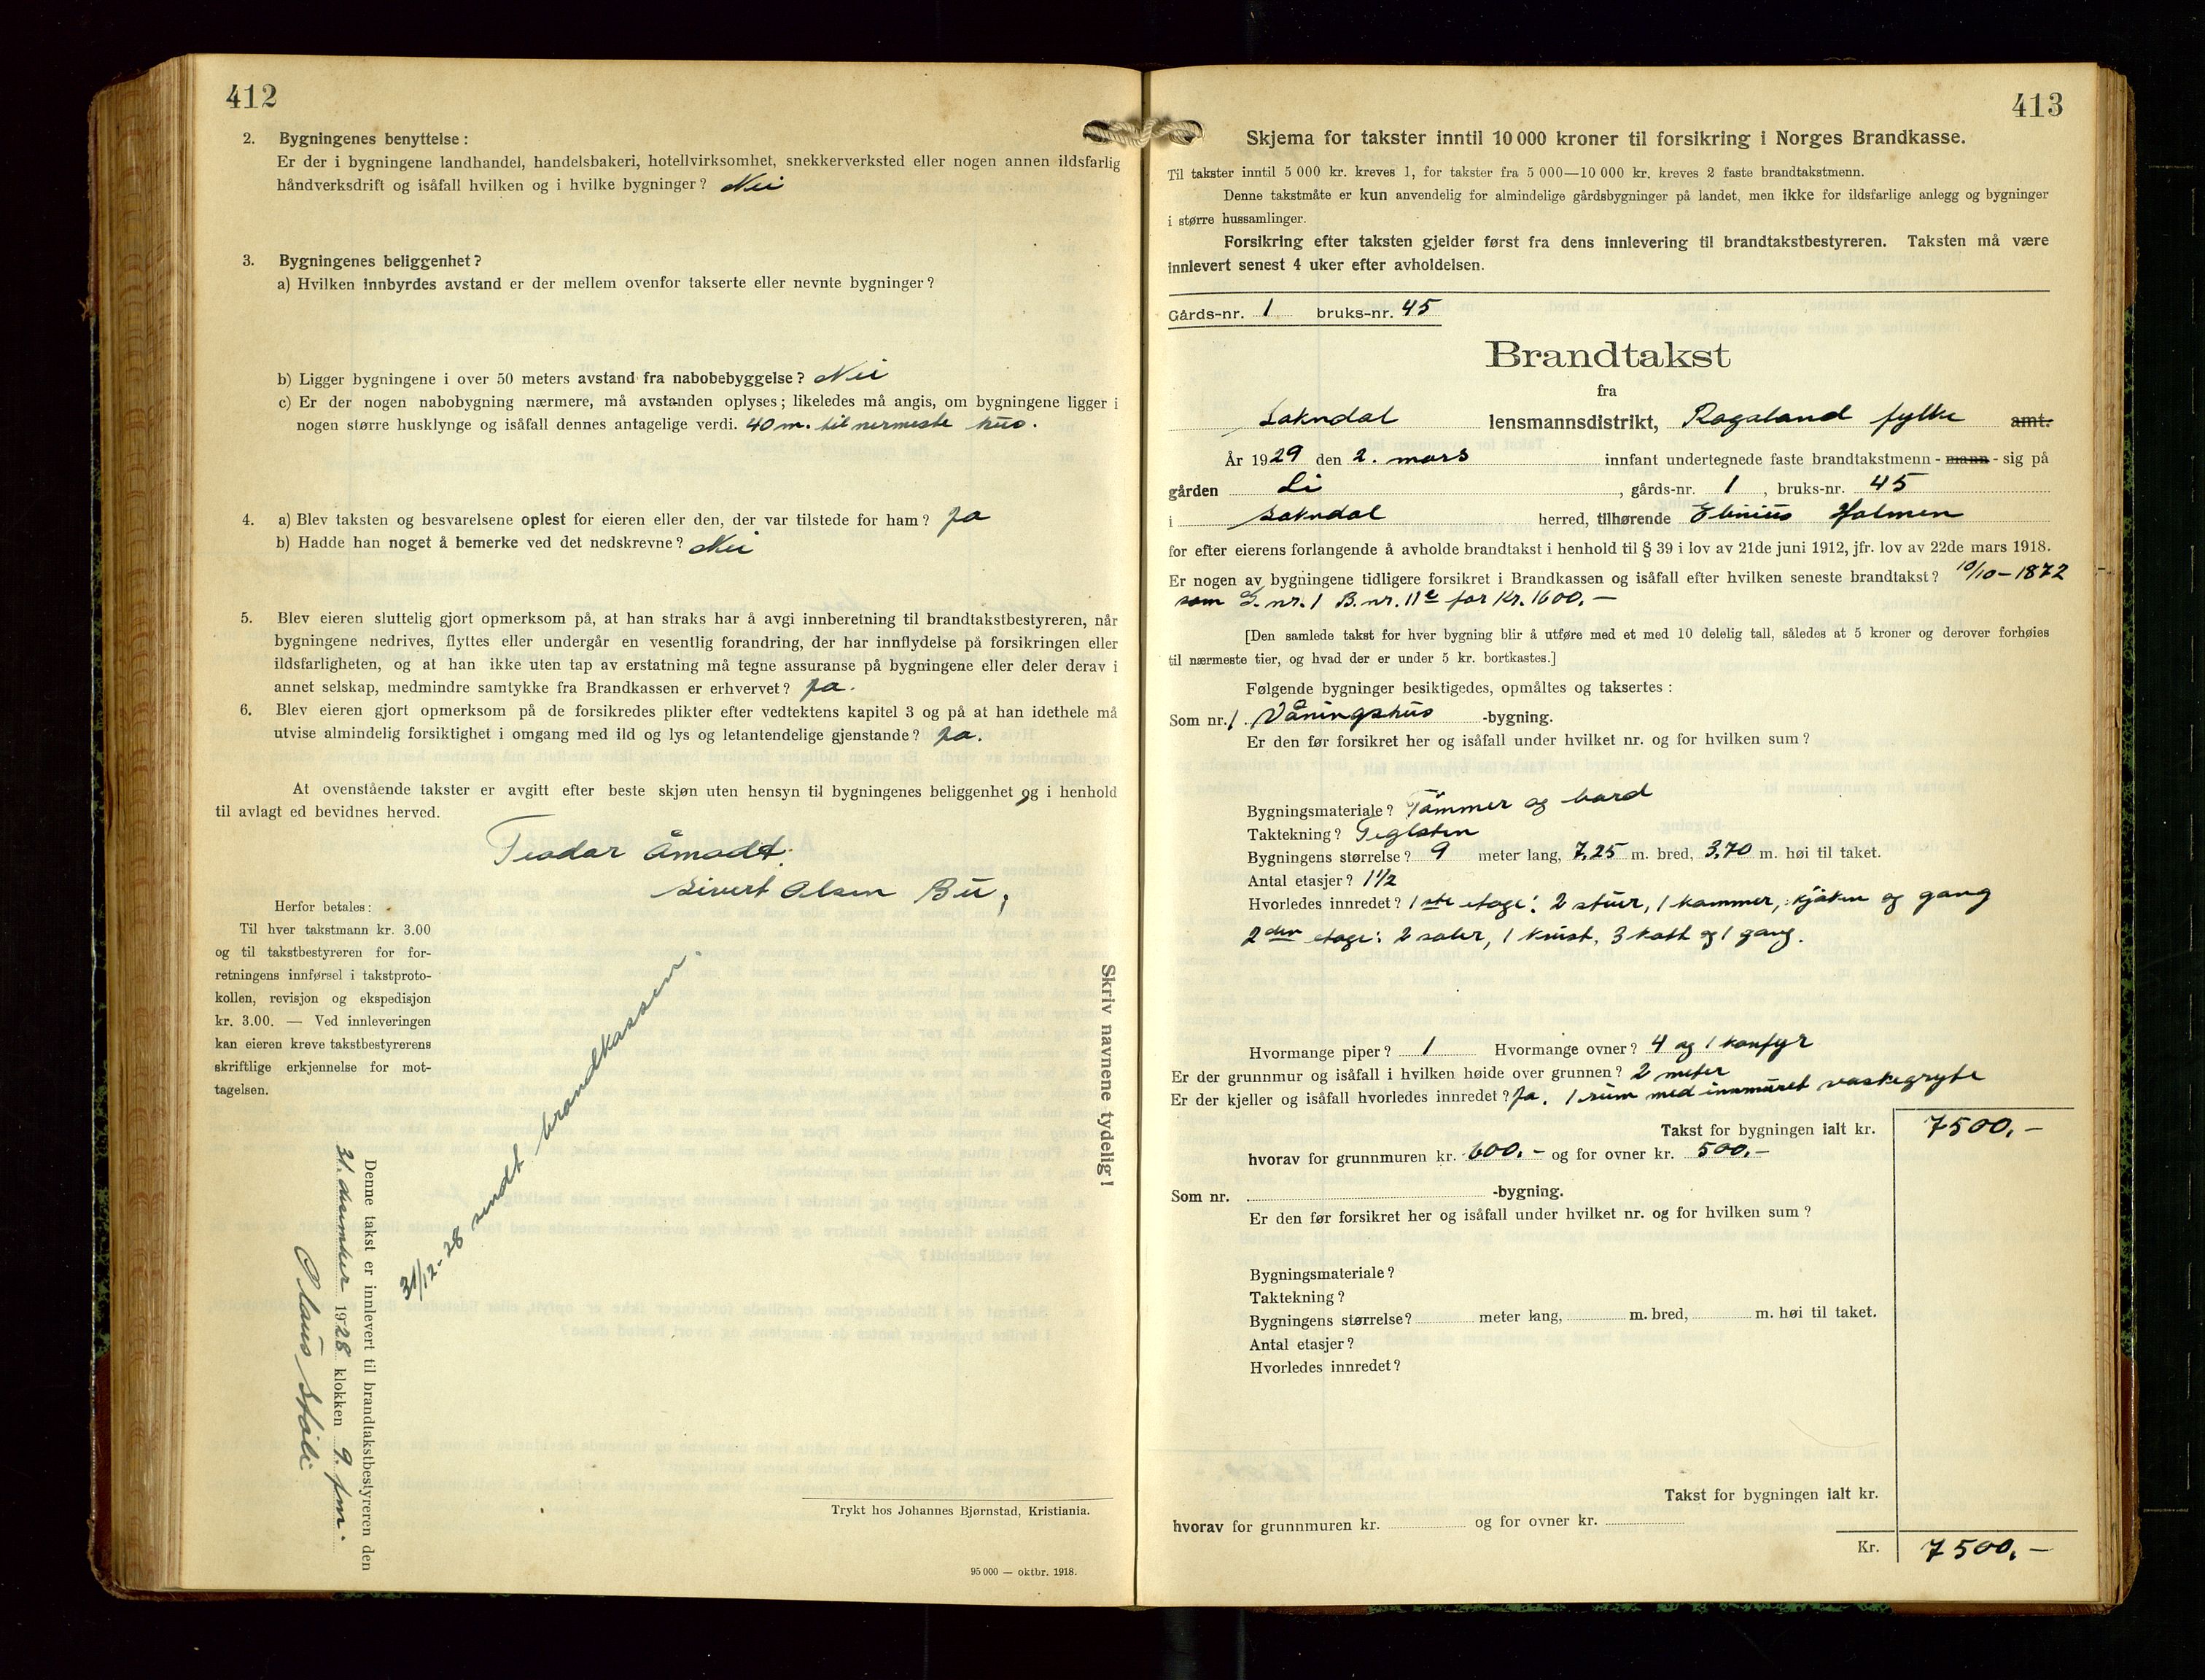 412
2. Bygningenes benyttelse:
Er der i bygningene landhandel, handelsbakeri, hotellvirksomhet, snekkerverksted eller nogen annen ildsfarlig
håndverksdrift og isåfall hvilken og i hvilke bygninger? Nei
3. Bygningenes beliggenhet?
a) Hvilken innbyrdes avstand er der mellem ovenfor takserte eller nevnte bygninger?
b) Ligger bygningene i over 50 meters avstand fra nabobebyggelse? Nei
c) Er der nogen nabobygning nærmere, må avstanden oplyses; likeledes må angis, om bygningene ligger i
nogen større husklynge og isåfall dennes antagelige verdi. 40 m. til nermeste hus.
4. a) Blev taksten og besvarelsene oplest for eieren eller den, der var tilstede for ham? Ja
b) Hadde han noget å bemerke ved det nedskrevne? Nei
5. Blev eieren sluttelig gjort opmerksom på, at han straks har å avgi innberetning til brandtakstbestyreren, når
bygningene nedrives, flyttes eller undergår en vesentlig forandring, der har innflydelse på forsikringen eller
ildsfarligheten, og at han ikke uten tap av erstatning må tegne assuranse på bygningene eller deler derav i
annet selskap, medmindre samtykke fra Brandkassen er erhvervet? Ja.
6. Blev eieren gjort opmerksom på de forsikredes plikter efter vedtektens kapitel 3 og på at han idethele må
utvise almindelig forsiktighet i omgang med ild og lys og letantendelige gjenstande? Ja.
At ovenstående takster er avgitt efter beste skjøn uten hensyn til bygningenes beliggenhet og i henhold
til avlagt ed bevidnes herved.
Teodor Åmodt.
Sivert Olsen Bu,
Herfor betales:
Til hver takstmann kr. 3.00
og til takstbestyreren for for-
retningens innførsel i takstproto-
kollen, revisjon og ekspedisjon
kr. 3.00. — Ved innleveringen
kan eieren kreve takstbestyrerens
skriftlige erkjennelse for mot-
tagelsen.
Skriv navnene tydelig!
31/12-28 sendt brandkassen.
Denne takst er innlevert til brandtakstbestyreren den
31. desember 1928 klokken 9. fm.
Olaus Stöle
Trykt hos Johannes Bjørnstad, Kristiania.
95 000 — oktbr. 1918.
413
Skjema for takster inntil 10 000 kroner til forsikring i Norges Brandkasse.
Til takster inntil 5 000 kr. kreves 1, for takster fra 5 000—10 000 kr. kreves 2 faste brandtakstmenn.
Denne takstmåte er kun anvendelig for almindelige gårdsbygninger på landet, men ikke for ildsfarlige anlegg og bygninger
i større hussamlinger.
Forsikring efter taksten gjelder først fra dens innlevering til brandtakstbestyreren. Taksten må være
innlevert senest 4 uker efter avholdelsen.
Gårds-nr. 1 bruks-nr. 45
Brandtakst
fra
Sokndal lensmannsdistrikt, Rogaland fylke amt.
År 1929 den 2. mars innfant undertegnede faste brandtakstmenn - mann - sig på
gården Li, gårds-nr. 1, bruks-nr. 45
i Sokndal herred, tilhørende Elinius Holmen
for efter eierens forlangende å avholde brandtakst i henhold til § 39 i lov av 21de juni 1912, jfr. lov av 22de mars 1918.
Er nogen av bygningene tidligere forsikret i Brandkassen og isåfall efter hvilken seneste brandtakst? 10/10-1872
som G.nr. 1 B.nr. 11e for Kr. 1600.-
[Den samlede takst for hver bygning blir å utføre med et med 10 delelig tall, således at 5 kroner og derover forhøies
til nærmeste tier, og hvad der er under 5 kr. bortkastes.]
Følgende bygninger besiktigedes, opmåltes og taksertes:
Som nr. 1 Våningshus -bygning.
Er den før forsikret her og isåfall under hvilket nr. og for hvilken sum?
Bygningsmateriale? Tömmer og bord
Taktekning? Teglsten
Bygningens størrelse? 9 meter lang, 7,25 m. bred, 3,70 m. høi til taket.
Antal etasjer? 1½
Hvorledes innredet? 1ste etage: 2 stuer, 1 kammer, kjöken og gang
2den etage: 2 saler, 1 kvist, 3 kott og 1 gang.
Hvormange piper? 1 Hvormange ovner? 4 og 1 komfyr
Er der grunnmur og isåfall i hvilken høide over grunnen? 2 meter
Er der kjeller og isåfall hvorledes innredet? Ja. 1 rum med innmuret vaskegryte
Takst for bygningen ialt kr. 7500,-
hvorav for grunnmuren kr. 600.- og for ovner kr. 500.-
Som nr. -bygning.
Er den før forsikret her og isåfall under hvilket nr. og for hvilken sum?
Bygningsmateriale?
Taktekning?
Bygningens størrelse? meter lang, m. bred, m. høi til taket.
Antal etasjer?
Hvorledes innredet?
Takst for bygningen ialt kr.
hvorav for grunnmuren kr. og for ovner kr.
Kr. 7500,-